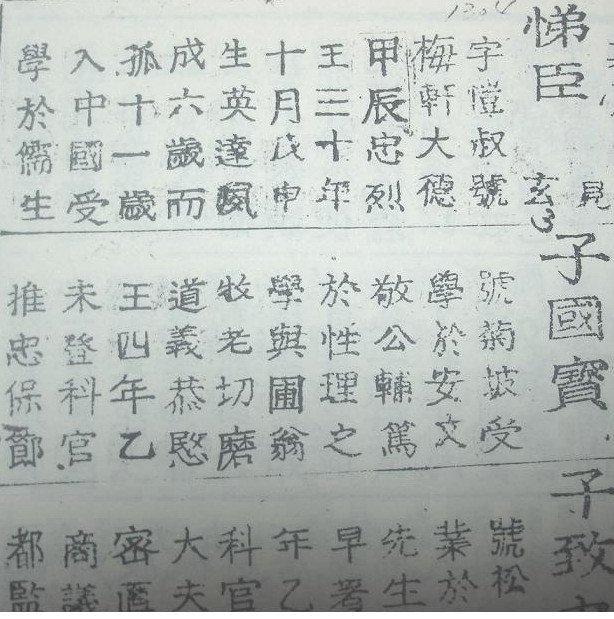 1304
見
悌臣
字愷叔號
梅軒大德
甲辰忠烈
王三十年
十月戊申
生英達夙
成六歲而
孤十一歲
入中國受
學於儒生
子國寶
號菊坡受
學於安文
敬公輔篤
於性理之
學與圃翁
牧老切磨
道義恭愍
王四年乙
未登科官
推忠保節
子致
號松
業於
先生
早署
年乙
科官
大夫
密直
商議
都監